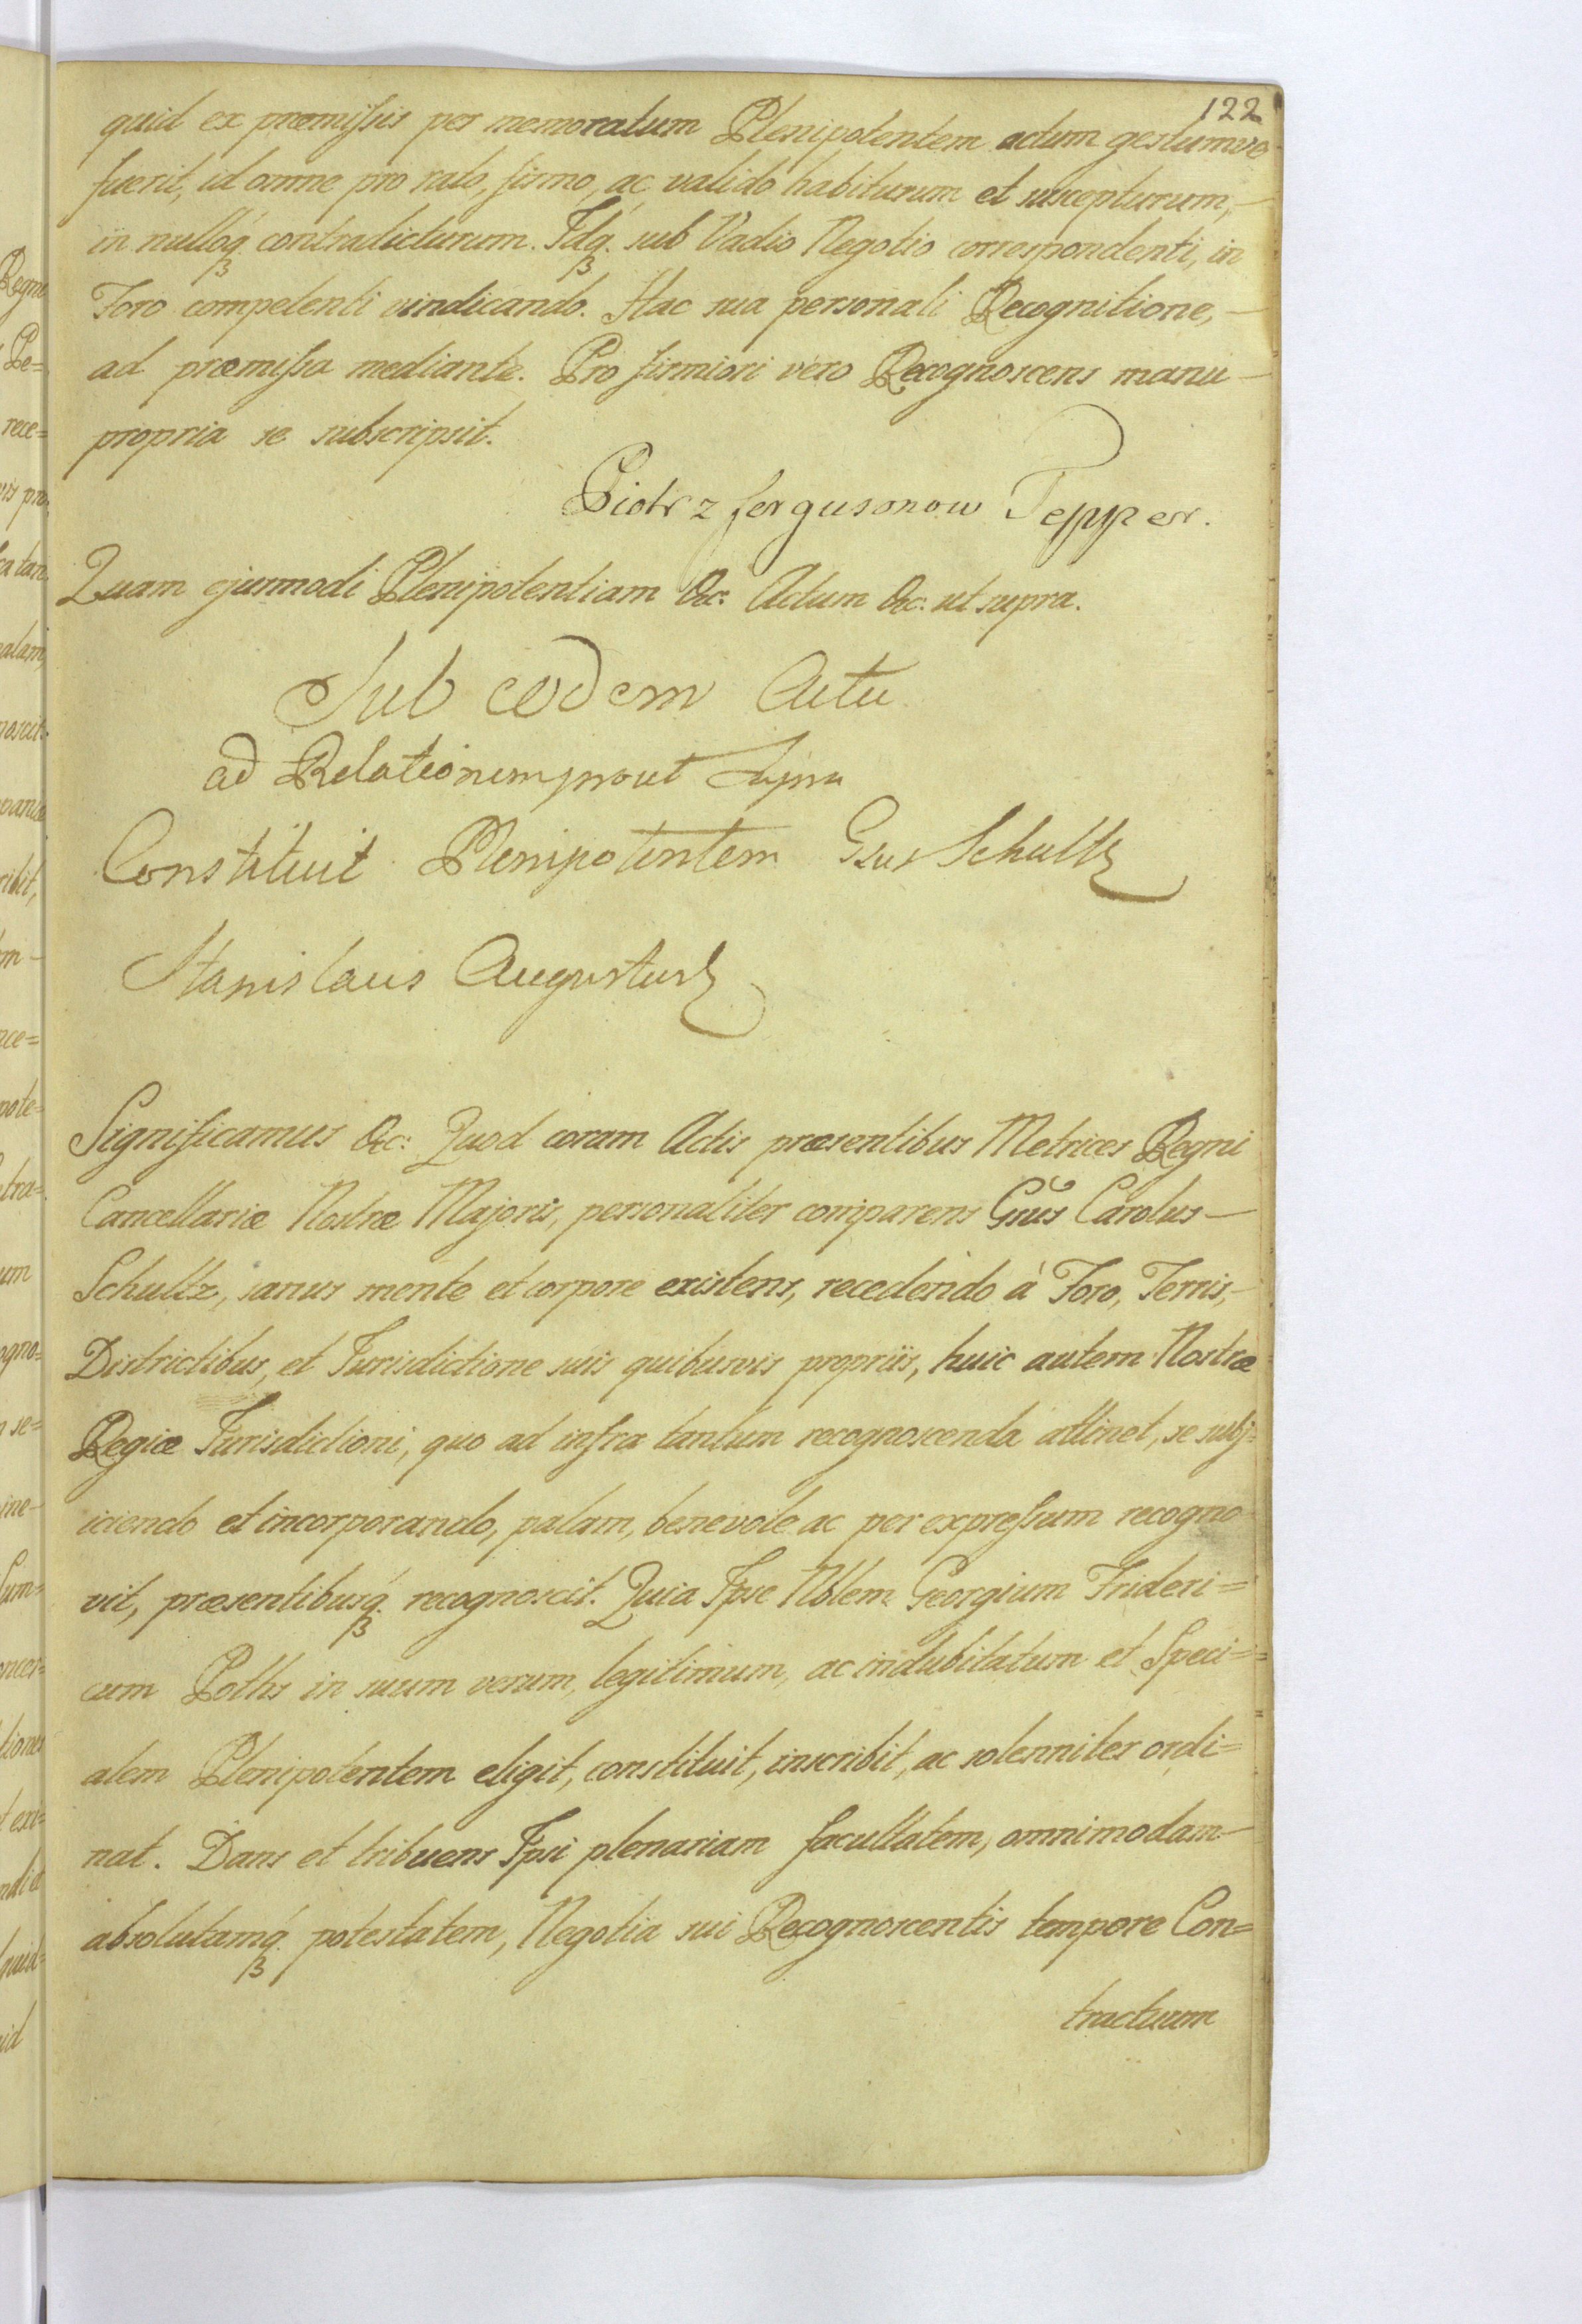 122
quid ex præmissis per memoratum Plenipotentem actum gestumve
fuerit, id omne pro rato, firmo, ac valido habiturum et suscepturum,
in nulloq́ꝫ contradicturum. Idq́ꝫ sub Vadio Negotio correspondenti, in
Foro competenti vindicando. Hac sua personali Recognitione,
ad præmissa mediante. Pro firmiori vero Recognoscens manu
propria se subscripsit.
Piotr z fergusonow Tepper.
Quam ejusmodi Plenipotentiam &c: Actum &c: ut supra.
Sub eodem Actu
ad Relationem prout Supra
Constituit Plenipotentem Gsus Schultz
Stanislaus Augustus
Significamus &c: Quod coram Actis præsentibus Metrices Regni
Cancellariæ Nostræ Majoris, personaliter comparens Gsus Carolus
Schultz, sanus mente et corpore existens, recedendo à Foro, Terris,
Districtibus, et Jurisdictione suis quibusvis propriis, huic autem Nostræ
Regiæ Jurisdictioni, quo ad infra tantum recognoscenda attinet, se subj=
iciendo et incorporando, palam, benevole ac per expressum recogno
vit, præsentibusq́ꝫ recognoscit. Quia Ipse Nblem Georgium Frideri=
cum Poths in suum verum, legitimum, ac indubitatum et Speci=
alem Plenipotentem eligit, constituit, inscribit, ac solenniter ordi=
nat. Dans et tribuens Ipsi plenariam facultatem, omnimodam
absolutamq́ꝫ potestatem, Negotia sui Recognoscentis tempore Con=
tractuum